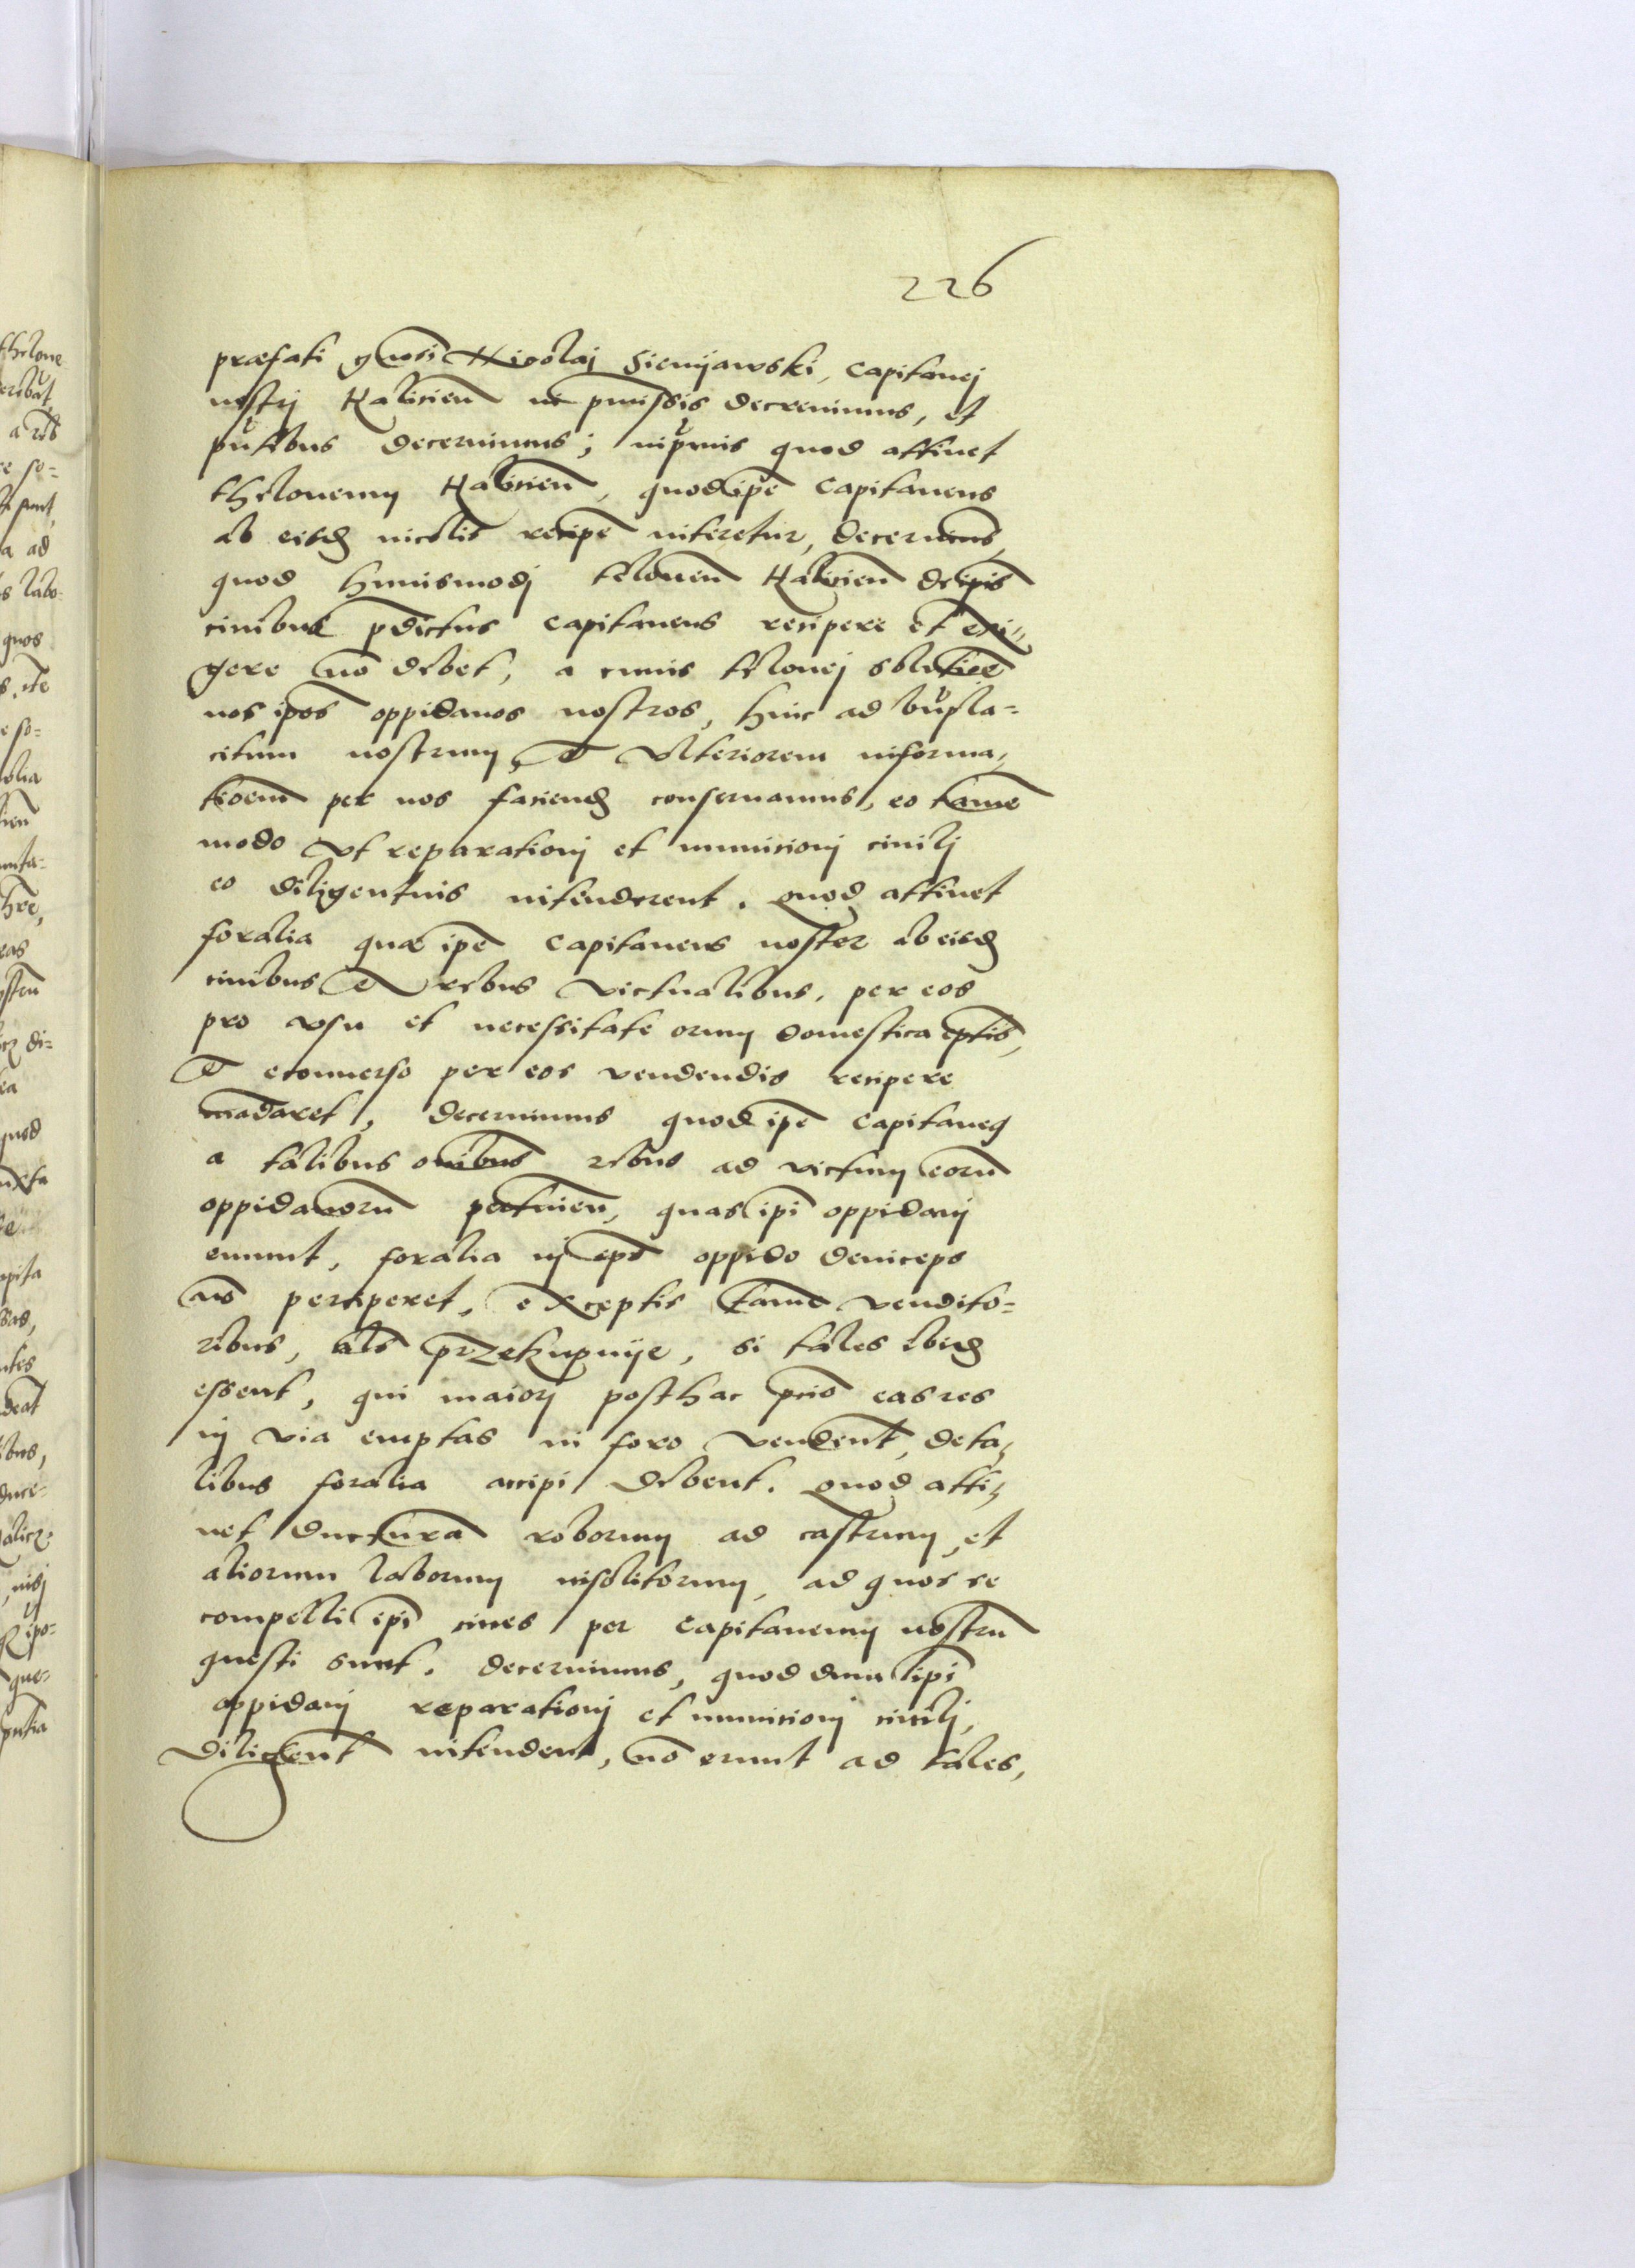 226
præfati gñosi Nicolaj Sienijawski, Capitanej
nostrj Halicieñ in pmissis decrevimus, et
pñtibus decernimus; inprimis quod attinet
thelonemum Halicieñ, quod ipẽ Capitaneus
ab eisdẽ incolis recipẽ niteretur, decernimus,
quod huiusmodj teloneũ Halicieñ de ipis
civibus pdictus Capitaneus recipere et exi-
gere nõ debet, a cuius telonej solutiõe
nos ipos oppidanos nostros, huic ad bñpla=
citum nostrum, et vlteriorem informa-
tioem per nos faciendã conservamus, eo tamẽ
modo vt reparationj et municionj civilj
eo diligentius intenderent. quod attinet
foralia quæ ipẽ Capitaneus noster ab eisdẽ
civibus et rebus victualibus, per eos
pro vsu et necessitate eorum domestica emptis,
et econuerso per eos vendendis recipere
mãdaret, decernimus quod ipẽ Capitaneus
a talibus oñibus rebus ad victum eorũ
oppidanorũ pertineñ, quas ipi oppidanj
emunt, foralia in ipo oppido deinceps
nõ perciperet, exceptis tamẽ vendito=
ribus, als przekupnije, si tales ibidẽ
essent, qui maiorj posthac pcio eas res
in via emptas in foro vendent, de ta-
libus foralia accipi debent. quod atti-
net ducturã roborum ad castrum, et
aliorum laborum insolitorum, ad quos se
compelli ipi cives per Capitaneum nostrũ
questi sunt. decernimus, quod dum ipi
oppidanj reparationj et municionj civilj,
diligent intendent, nõ erunt ad tales,